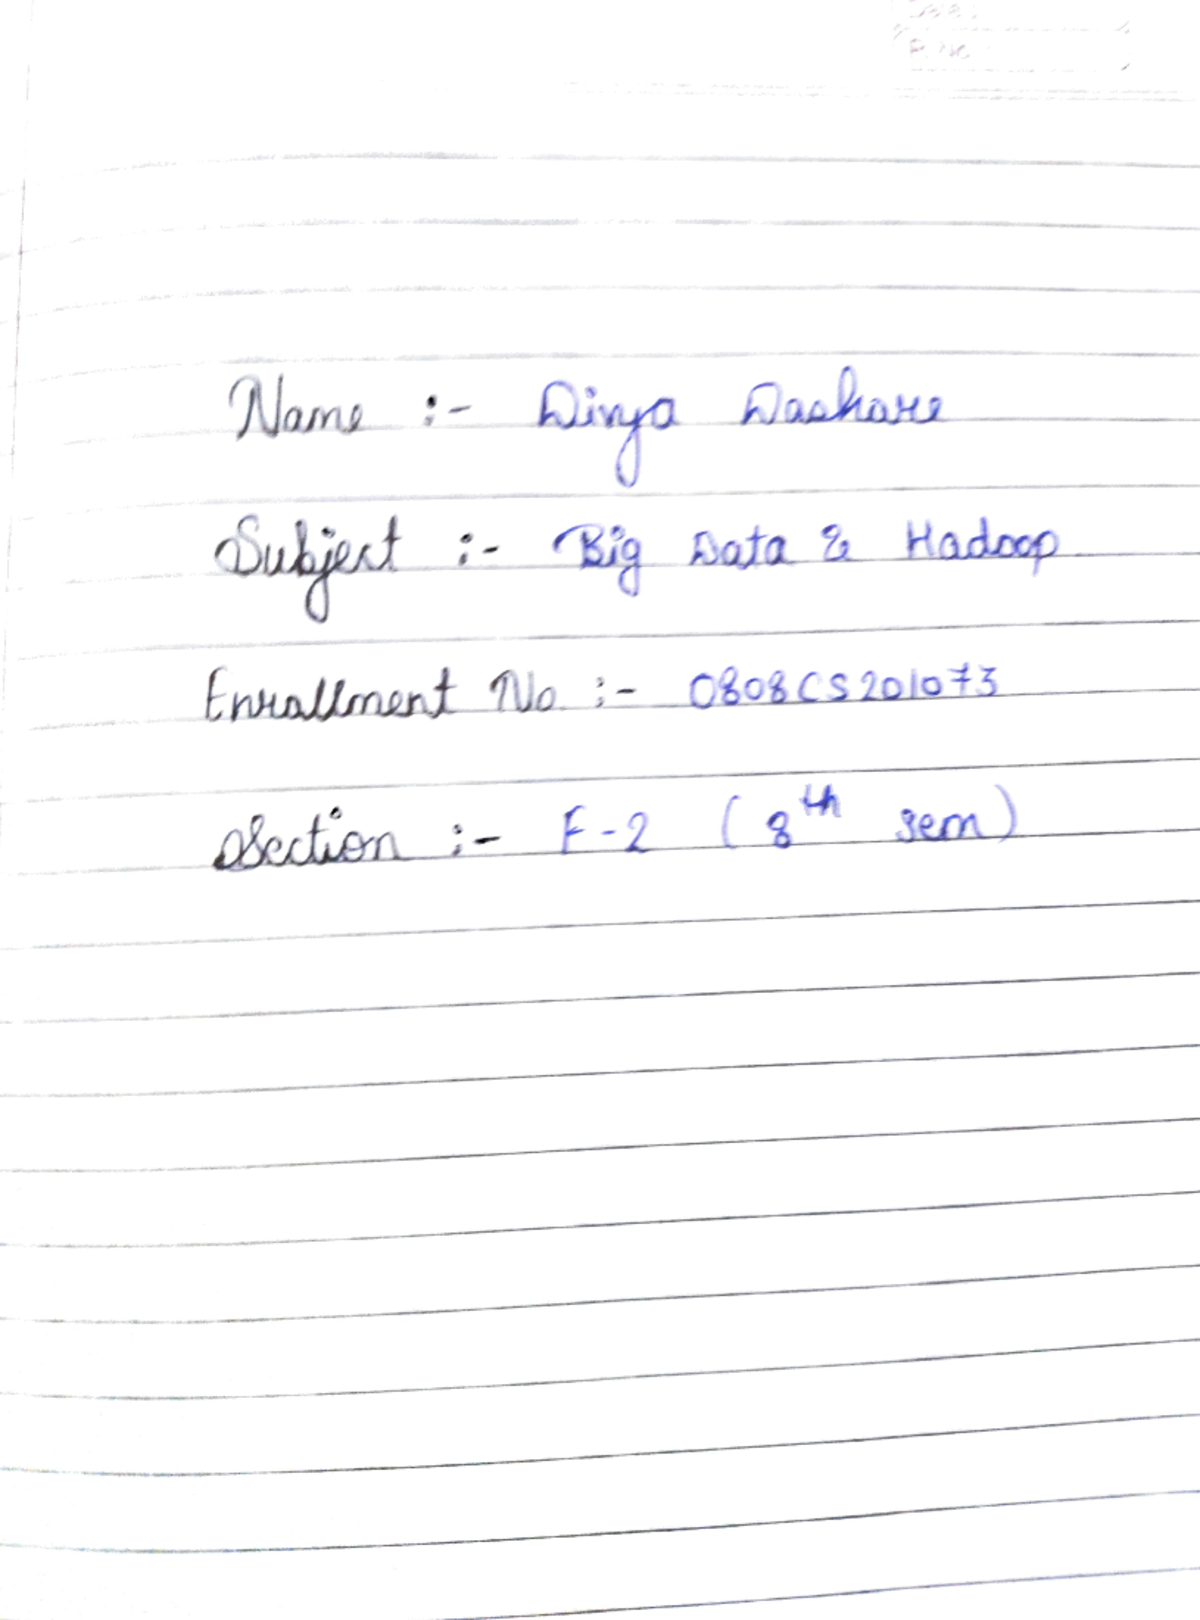 Name :- Divya Dashore
Subject :- Big Data & Hadoop
Enrallment No. :- 0808CS201073
Section :- F-2 (8th sem)